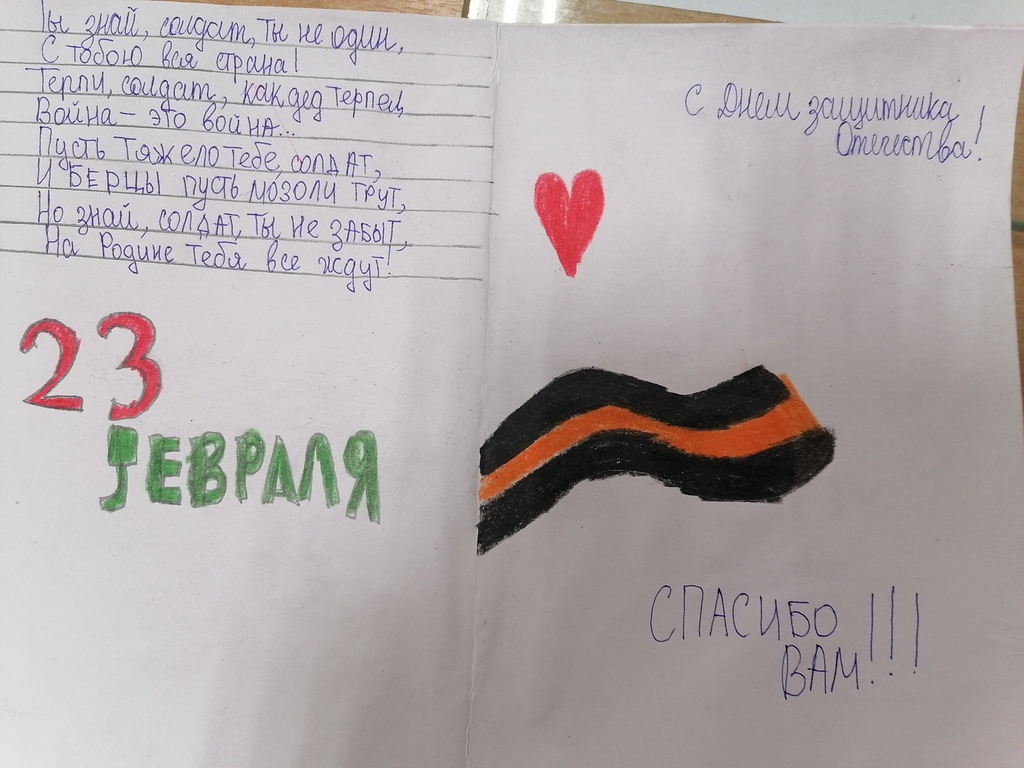 Ты знай, солдат, ты не один,
С тобою вся страна!
Терпи, солдат, как дед терпел,
Война – это война...
Пусть тяжело тебе, солдат,
И БЕРЦЫ пусть мозоли трут,
Но знай, солдат, ты не забыт,
На Родине тебя все ждут!
23
ФЕВРАЛЯ
С Днем защитника
Отечества!
СПАСИБО
ВАМ!!!